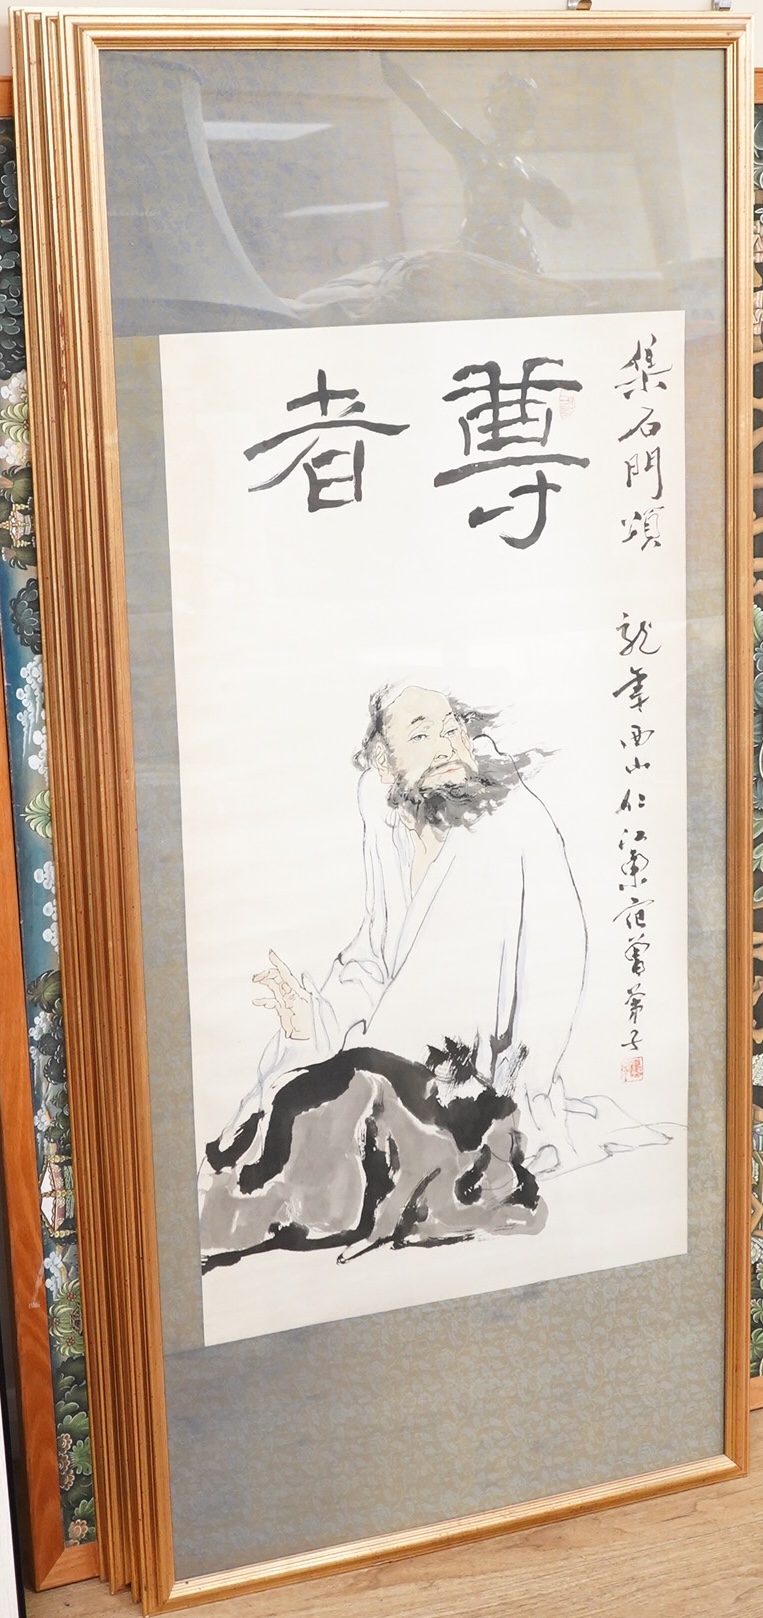 尊者
集石門頌 龍年西山仁江東范曾弟子